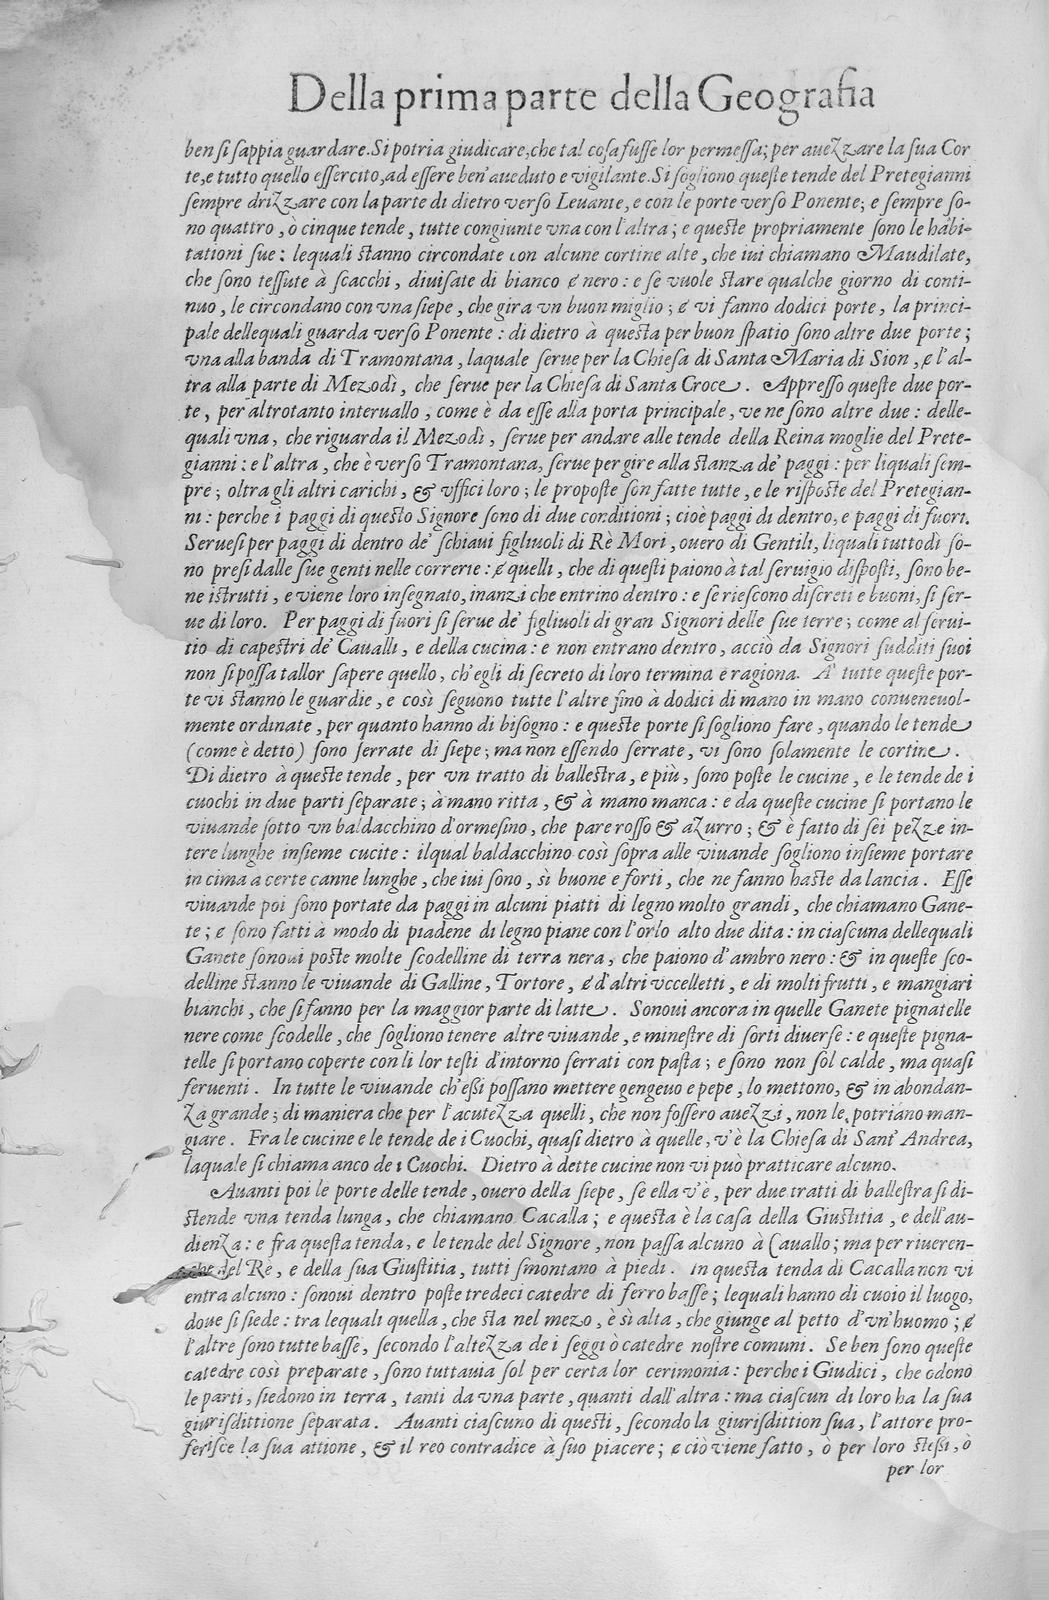 Della prima parte della Geografia
ben si sappia guardare. Si potria giudicare, che tal cosa fusse lor permessa; per auezzare la sua Cor
te, e tutto quello essercito, ad essere ben'aueduto e vigilante. Si sogliono queste tende del Pretegianni
sempre drizzare con la parte di dietro verso Leuante, e con le porte verso Ponente; e sempre so-
no quattro, ò cinque tende, tutte congiunte vna con l'altra; e queste propriamente sono le habi-
tationi sue: lequali stanno circondate con alcune cortine alte, che iui chiamano Maudilate,
che sono tessute à scacchi, diuisate di bianco e nero: e se vuole stare qualche giorno di conti-
nuo, le circondano con vna siepe, che gira vn buon miglio; e vi fanno dodici porte, la princi-
pale dellequali guarda verso Ponente: di dietro à questa per buon spatio sono altre due porte;
vna alla banda di Tramontana, laquale serue per la Chiesa di Santa Maria di Sion, e l'al-
tra alla parte di Mezodì, che serue per la Chiesa di Santa Croce. Appresso queste due por-
te, per altrotanto interuallo, come è da esse alla porta principale, ve ne sono altre due: delle-
quali vna, che riguarda il Mezodì, serue per andare alle tende della Reina moglie del Prete-
gianni: e l'altra, che è verso Tramontana, serue per gire alla stanza de' paggi: per liquali sem-
pre; oltra gli altri carichi, & vffici loro; le proposte son fatte tutte, e le risposte del Pretegian-
ni: perche i paggi di questo Signore sono di due conditioni; cioè paggi di dentro, e paggi di fuori.
Seruesi per paggi di dentro de' schiaui figliuoli di Rè Mori, ouero di Gentili, liquali tuttodì so-
no presi dalle sue genti nelle correrie: e quelli, che di questi paiono à tal seruigio disposti, sono be-
ne istrutti, e viene loro insegnato, inanzi che entrino dentro: e se riescono discreti e buoni, si ser-
ue di loro. Per paggi di fuori si serue de' figliuoli di gran Signori delle sue terre; come al serui-
tio di capestri de' Caualli, e della cucina: e non entrano dentro, acciò da Signori sudditi suoi
non si possa tallor sapere quello, ch'egli di secreto di loro termina e ragiona. A' tutte queste por-
te vi stanno le guardie, e così seguono tutte l'altre fino à dodici di mano in mano conueneuol-
mente ordinate, per quanto hanno di bisogno: e queste porte si sogliono fare, quando le tende
(come è detto) sono serrate di siepe; ma non essendo serrate, vi sono solamente le cortine.
Di dietro à queste tende, per vn tratto di ballestra, e più, sono poste le cucine, e le tende de i
cuochi in due parti separate; à mano ritta, & à mano manca: e da queste cucine si portano le
viuande sotto vn baldacchino d'ormesino, che pare rosso & azurro; & è fatto di sei pezze in-
tere lunghe insieme cucite: ilqual baldacchino così sopra alle viuande sogliono insieme portare
in cima a certe canne lunghe, che iui sono, sì buone e forti, che ne fanno haste da lancia. Esse
viuande poi sono portate da paggi in alcuni piatti di legno molto grandi, che chiamano Gane-
te; e sono fatti à modo di piadene di legno piane con l'orlo alto due dita: in ciascuna dellequali
Ganete sonoui poste molte scodelline di terra nera, che paiono d'ambro nero: & in queste sco-
delline stanno le viuande di Galline, Tortore, e d'altri vccelletti, e di molti frutti, e mangiari
bianchi, che si fanno per la maggior parte di latte. Sonoui ancora in quelle Ganete pignatelle
nere come scodelle, che sogliono tenere altre viuande, e minestre di sorti diuerse: e queste pigna-
telle si portano coperte con li lor testi d'intorno serrati con pasta; e sono non sol calde, ma quasi
feruenti. In tutte le viuande ch'essi possano mettere gengeuo e pepe, lo mettono, & in abondan-
za grande; di maniera che per l'acutezza quelli, che non fossero auezzi, non le potriano man-
giare. Fra le cucine e le tende de i Cuochi, quasi dietro à quelle, v'è la Chiesa di Sant' Andrea,
laquale si chiama anco de i Cuochi. Dietro à dette cucine non vi può pratticare alcuno.
Auanti poi le porte delle tende, ouero della siepe, se ella v'è, per due tratti di ballestra si di-
stende vna tenda lunga, che chiamano Cacalla; e questa è la casa della Giustitia, e dell'au-
dienza: e fra questa tenda, e le tende del Signore, non passa alcuno à Cauallo; ma per riueren-
del Rè, e della sua Giustitia, tutti smontano à piedi. In questa tenda di Cacalla non vi
entra alcuno: sonoui dentro poste tredeci catedre di ferro basse; lequali hanno di cuoio il luogo,
doue si siede: tra lequali quella, che sta nel mezo, è sì alta, che giunge al petto d'vn'huomo; e
l'altre sono tutte basse, secondo l'altezza de i seggi ò catedre nostre comuni. Se ben sono queste
catedre così preparate, sono tuttauia sol per certa lor cerimonia: perche i Giudici, che odono
le parti, siedono in terra, tanti da vna parte, quanti dall'altra: ma ciascun di loro ha la sua
giurisdittione separata. Auanti ciascuno di questi, secondo la giurisdittion sua, l'attore pro-
ferisce la sua attione, & il reo contradice à suo piacere; e ciò viene fatto, ò per loro stessi, ò
per lor